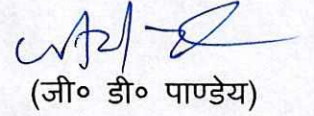 (जी० डी० पाण्डेय)